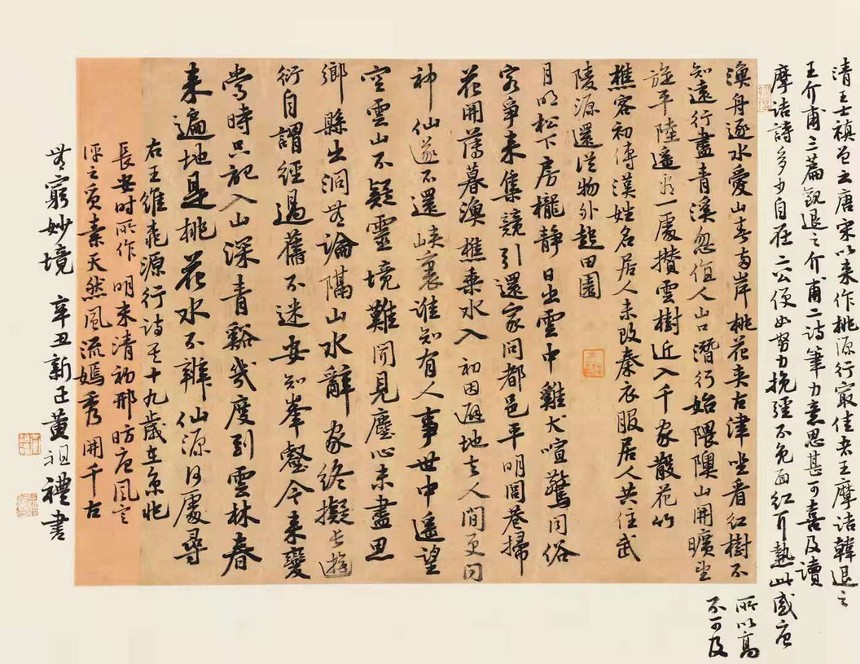 清王士禛曾云唐宋以来作桃源行最佳者王摩诘韓退之
王介甫三篇觀退之介甫二詩筆力意思甚可喜及讀
摩诘詩多少自在二公便如努力挽强不免面紅耳熱此盛唐
所以高
不可及
漁舟逐水愛山春兩岸桃花夾古津坐看紅樹不
知遠行盡青溪忽值人山口潛行始隈隩山開曠望
旋平陸遥看一處攢雲樹近入千家散花竹
樵客初傳漢姓名居人未改秦衣服居人共住武
陵源還從物外起田園
月明松下房櫳靜日出雲中雞犬喧驚聞俗
客爭来集競引還家問都邑平明閭巷掃
花開薄暮漁樵乘水入初因避地去人間更問
神仙遂不還峡裏誰知有人事世中遥望
空雲山不疑靈境難聞見塵心未盡思
鄉縣出洞無論隔山水辭家終擬長遊
衍自謂經過舊不迷安知峯壑今来變
當時只記入山深青谿幾度到雲林春
来遍地是桃花水不辨仙源何處尋
右王維桃源行詩其十九歲在京兆
長安時所作明末清初邢昉唐風定
評之質素天然風流嫣秀開千古
無窮妙境 辛丑新正黄祖禮書